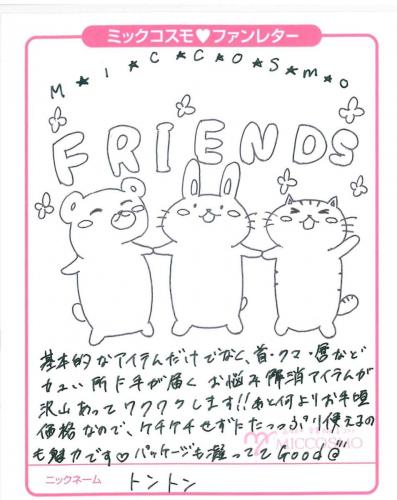 ミックコスモ♥ファンレター
M★I★C★C★O★S★M★O
FRIENDS
基本的なアイテムだけでなく、首・クマ・唇など
カユい所に手が届くお悩み解消アイテムが
沢山あってワクワクします!!あと何よりお手頃
価格なので、ケチケチせずにたっっぷり使えるの
も魅力です♡パッケージも凝っててGood@
MICCOSMO
ニックネーム トントン